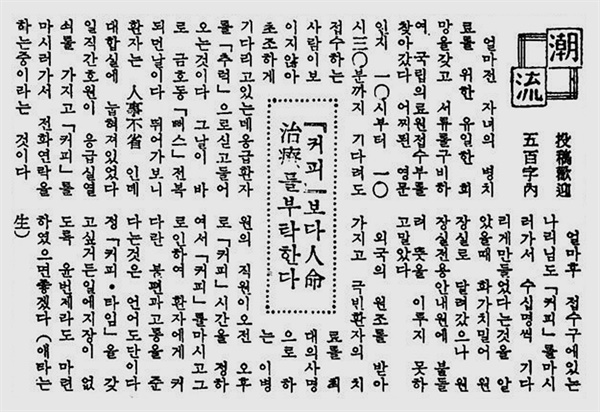 潮流
投稿歡迎
五百字內
「커피」보다 人命
治療를 부탁한다
얼마전 자녀의 병치
료를 위한 유일한 희
망을갖고 서류를구비하
여 국립의료원접수부를
찾아갔다 어찌된 영문
인지 一〇시부터 一〇
시三〇분까지 기다려도
접수하는
사람이보
이지않아
초조하게
기다리고있는데응급환자
를「추럭」으로싣고들어
오는것이다 그날이 바
로 금호동「뻐스」전복
되던날이다 뛰어가보니
환자는 人事不省 인데
대합실에 눕혀져있었다
일직간호원이 응급실열
쇠를 가지고「커피」를
마시러가서 전화연락을
하는중이라는 것이다
얼마후 접수구에있는
나리님도「커피」를마시
러가서 수십명씩 기다
리게만들었다는것을 알
았을때 화가치밀어 원
장실로 달려갔으나 원
장실전용안내원에 붙들
려 뜻을 이루지 못하
고말았다
외국의 원조를 받아
가지고 극빈환자의 치
료를 최
대의사명
으로 하
는 이병
원의 직원이오전 오후
로「커피」시간을 정하
여서「커피」를마시고그
로인하여 환자에게 커
다란 불편과고통을 준
다는것은 언어도단이다
정「커피・타임」을 갖
고싶거든일에지장이 없
도록 윤번제라도 마련
하였으면좋겠다 (애타는
生)